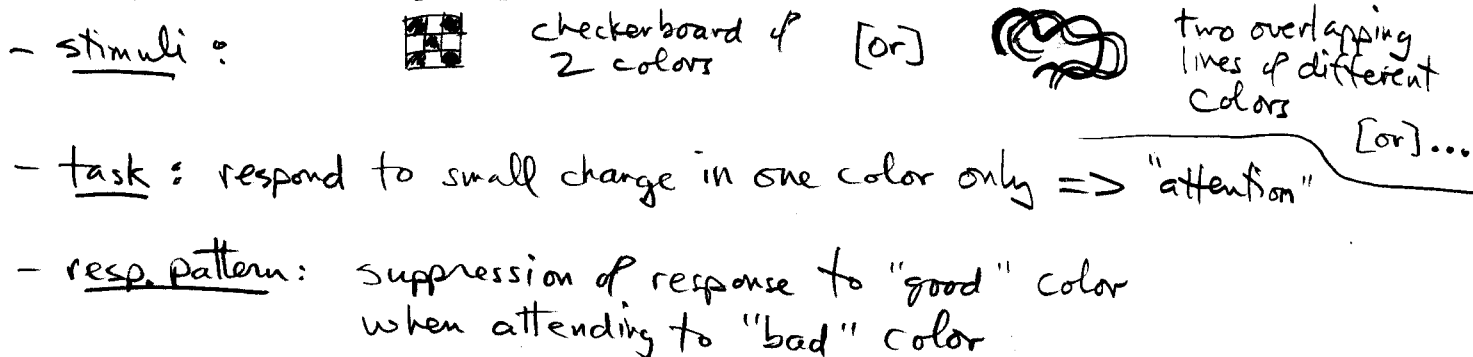 - stimuli : checkerboard of 2 colors [or] two overlapping lines of different colors [or]...
- task : respond to small change in one color only => "attention"
- resp. pattern: suppression of response to "good" color
when attending to "bad" color